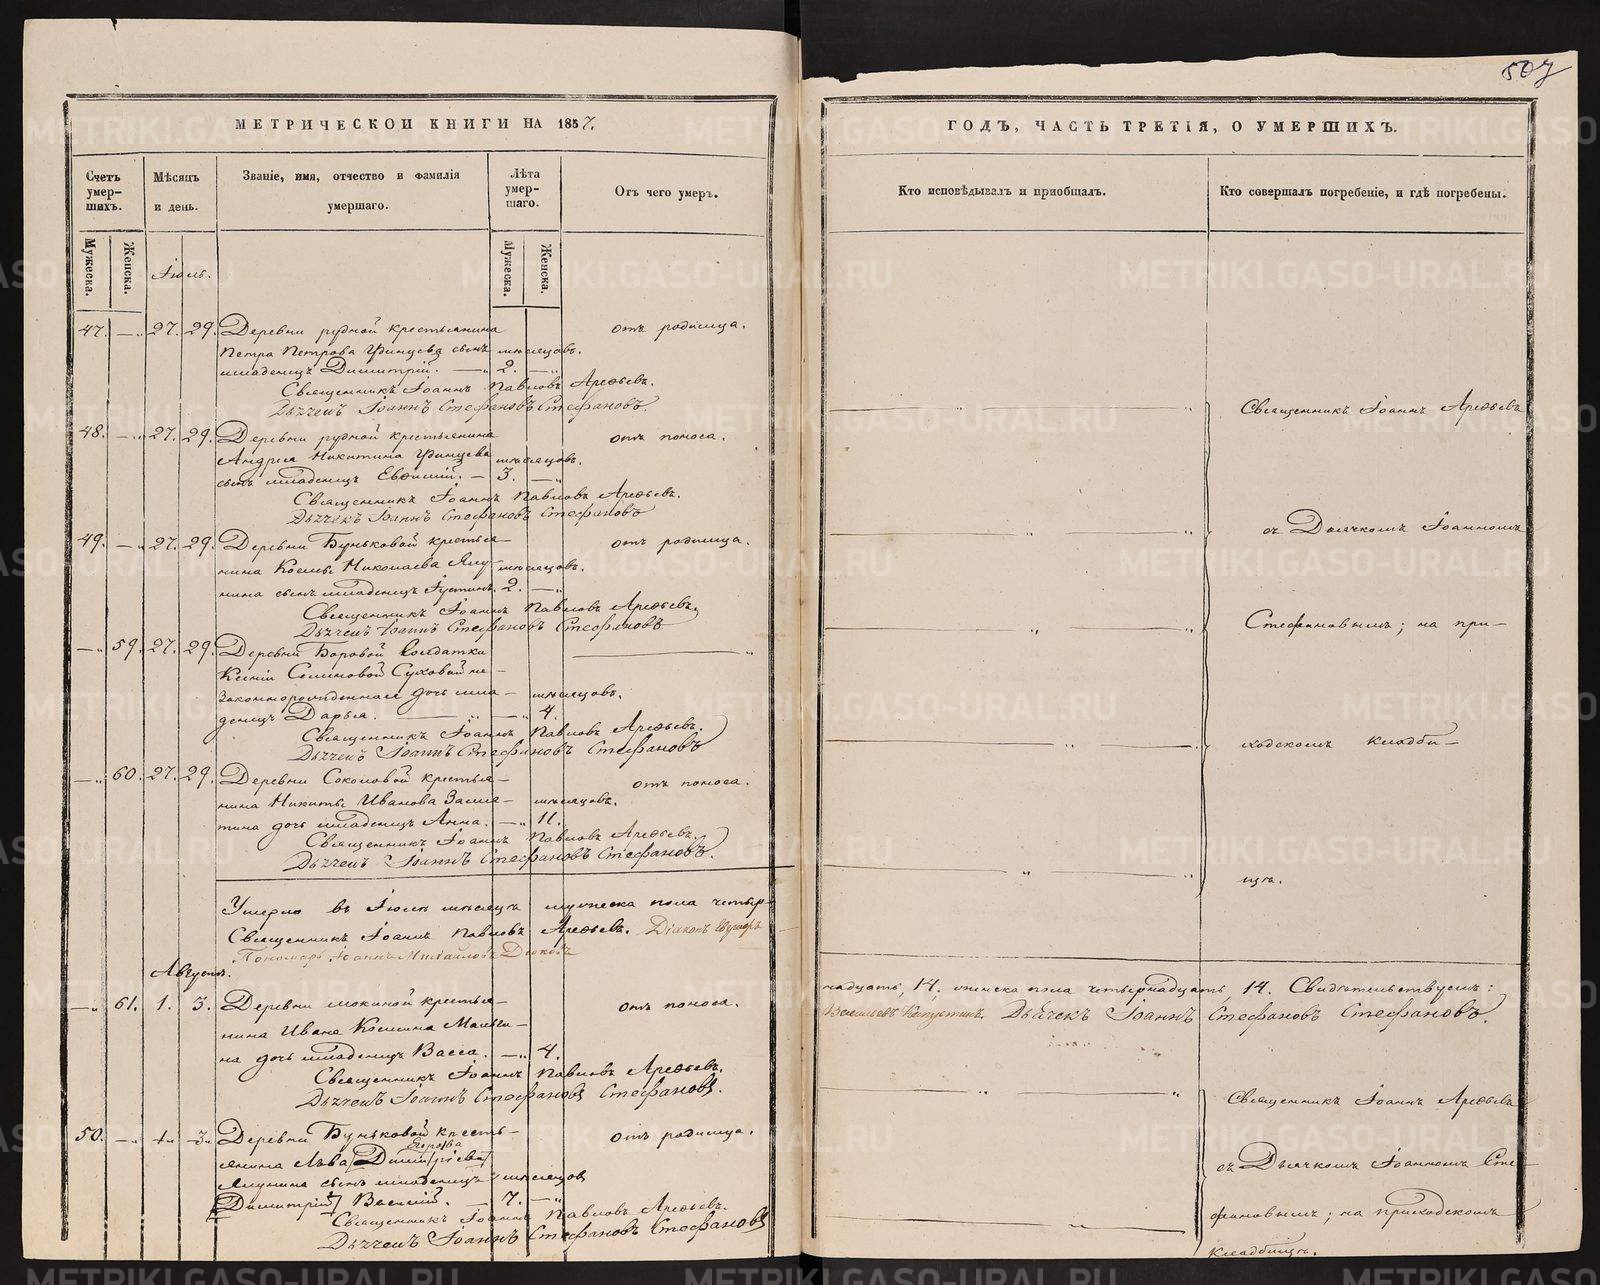 507
МЕТРИЧЕСКОИ КНИГИ НА 1857.
Счетъ умер-шихъ.
Мѣсяцъ и день.
Званіе, имя, отчество и фамилія умершаго.
Лѣта умер-шаго.
Отъ чего умеръ.
Мужеска.
Женска.
Мужеска.
Женска.
Іюль.
47. —„ 27. 29. Деревни рудной крестьянина отъ родимца.
Петра Петрова сынъ мѣсяцовъ.
младенецъ Димитрій. —„ 2. —„
Священникъ Іоаннъ Павловъ Арефьевъ.
Дьячекъ Іоаннъ Стефановъ Стефановъ.
48. —„ 27. 29. Деревни рудной крестьянина отъ поноса.
Андрея Никитина мѣсяцовъ.
сынъ младенецъ Евѳимій. — 3. —„
Священникъ Іоаннъ Павловъ Арефьевъ.
Дьячекъ Іоаннъ Стефановъ Стефановъ
49. —„ 27. 29. Деревни Буньковой крестья— отъ родимца.
нина Космы Николаева Ялу- мѣсяцовъ.
нина сынъ младенецъ Іустинъ. 2. —„
Священникъ Іоаннъ Павловъ Арефьевъ.
Дьячекъ Іоаннъ Стефановъ Стефановъ
—„ 59. 27. 29. Деревни Боровой Солдатки
Ксеніи Семиновой Суховой не—
законнорожденная дочь мла— мѣсяцовъ.
денецъ Дарья. —„ —„ 4.
Священникъ Іоаннъ Павловъ Арефьевъ.
Дьячекъ Іоаннъ Стефановъ Стефановъ
—„ 60. 27. 29. Деревни Соколовой крестья— отъ поноса.
нина Никиты Иванова Замя— мѣсяцовъ.
тина дочь младенецъ Анна. —„ 11.
Священникъ Іоаннъ Павловъ Арефьевъ.
Дьячекъ Іоаннъ Стефановъ Стефановъ.
Умерло въ Іюлѣ мѣсяцѣ мужеска пола четыр-
Священникъ Іоаннъ Павловъ Арефьевъ. Діаконъ
Пономарь Іоаннъ Михайловъ
Августъ.
—„ 61. 1. 3. Деревни крестья— отъ поноса.
нина Ивана Космина Мальги—
на дочь младенецъ Васса. —„ 4.
Священникъ Іоаннъ Павловъ Арефьевъ.
Дьячекъ Іоаннъ Стефановъ Стефановъ.
50. —„ 1. 3. Деревни Буньковой кресть— отъ родимца.
Егорова
янина Льва [Димитріева]
Ялунина сынъ младенецъ мѣсяцовъ
[Димитрій] Василій. — 7. —„
Священникъ Іоаннъ Павловъ Арефьевъ.
Дьячекъ Іоаннъ Стефановъ Стефановъ
ГОДЪ, ЧАСТЬ ТРЕТІЯ, О УМЕРШИХЪ.
Кто исповѣдывалъ и пріобщалъ.
Кто совершалъ погребеніе, и гдѣ погребены.
Священникъ Іоаннъ Арефьевъ
съ Дьячкомъ Іоанномъ
Стефановымъ; на при—
ходскомъ кладби—
щѣ.
надцать, 14; женска пола четырнадцать, 14. Свидѣтельствуемъ:
Васильевъ Капустинъ. Дьячекъ Іоаннъ Стефановъ Стефановъ.
Священникъ Іоаннъ Арефьевъ
съ Дьячкомъ Іоанномъ Сте—
фановымъ; на приходскомъ
кладбищѣ.
METRIKI.GASO-URAL.RU